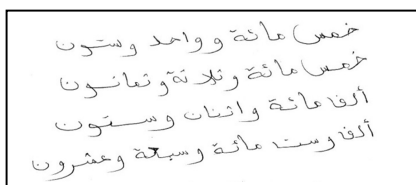 خمس مائة وواحد وستون
خمس مائة وثلاثة وثمانون
ألف مائة واثنان وستون
ألف وست مائة وسبعة وعشرون